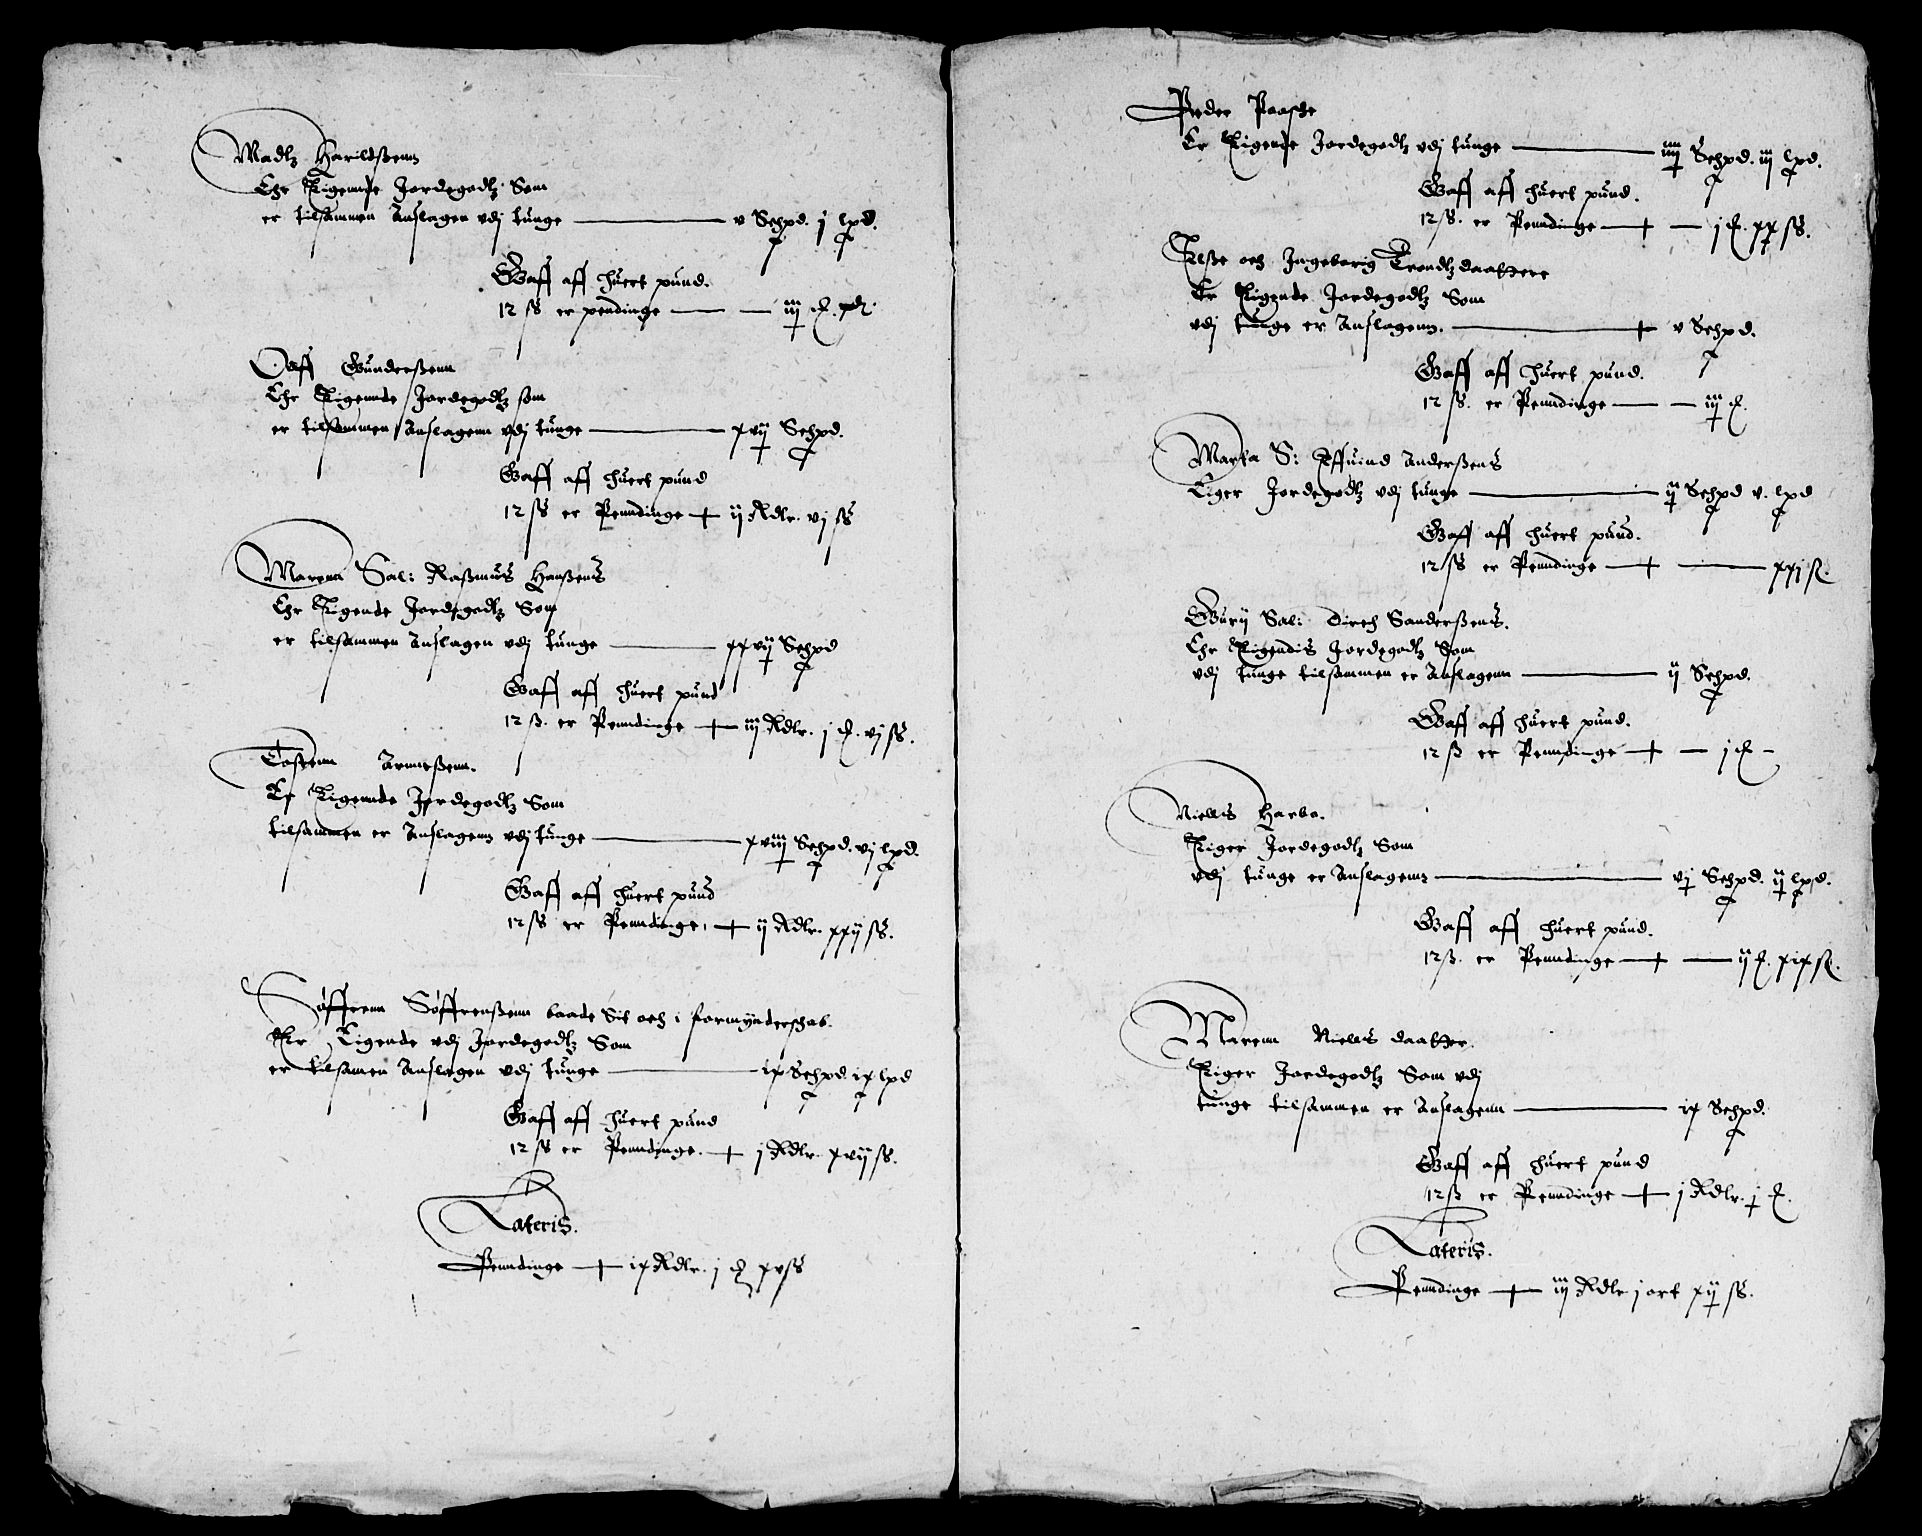 Madtz Harildßenn
Ehr Eigennde Jordegodtz Som
er tilsammen Anslagen vdj tunge v Schpd. j lpd.
Gaff aff huert pund.
12 ss er pendinge iij
Oluff Gunderßenn
Ehr Eigennde Jordegodtz som
er tilsammen Anslagenn vdj tunge xvij Schpd.
Gaff aff huert pund
12 ss er Penndinge ij Rdlr. vj ss
Marenn Sal: Raßmus Hanßens
Ehr Eigende Jordegodtz Som
er tilsammen Anslagen vdj tunge xxvij Schpd
Gaff aff huert pund
12 ß. er Penndinge iij Rdlr. j vj ss.
Tostenn Arnneßenn.
Er Eigennde Jordegodtz Som
tilsammen er Anslagenn vdj tunge xviij Schpd. vj lpd.
Gaff aff huert pund
12 ss er Penndinge, ij Rdlr. xxij ss.
Søffrenn Søffrenßenn baade Sit och i formynderschab.
Er Eigende vdj Jordegodtz Som
er tilsamen Anslagen vdj tunge ix Schpd. ix lpd
Gaff aff huert pund
12 ss er Penndinge. j Rdlr. xvij ss.
Lateris.
Penndinge ix Rdlr. j xv ss
Peder Paasche
Er Eigende Jordegodtz vdj tunge iiij Schpd. iij lpd.
Gaff aff huert pund.
12 ss. er Penndinge j xx ss.
Elße och Ingeborig Trondtzdaattere
Er Eigende Jordegodtz Som
vdj tunge er Anslagenn. v Schpd.
Gaff aff huert pund.
12 ss. er Penndinge iij
Marta S: Effuind Anderßens
Eiger Jordegodtz vdj tunge ij Schpd v. lpd
Gaff aff huert pund.
12 ss er Penndinge xxj ss.
Gurij Sal: Dirch Sanderßens.
Ehr Eigendis Jordegodtz Som
vdj tunge tilsammen er Anslagenn ij Schpd.
Gaff aff huert pund.
12 ß er Penndinge j
Niells Harbo.
Eiger Jordegodtz Som
vdj tunge er Anslagenn vj Schpd. ij lpd.
Gaff aff huert pund.
12 ß. er Penndinge ij xix ss.
Marenn Niells daatter.
Eiger Jordegodtz Som vdj
tunge tilsammen er Anslagenn ix Schpd.
Gaff aff huert pund
12 ß er Penndinge j Rdlr. j
Lateris.
Penndinge iij Rdlr j ort xij ss.